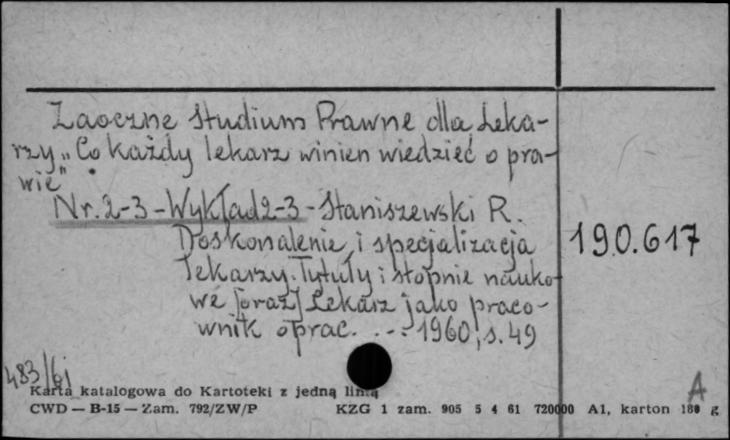 Zaoczne Studium Prawne dla Leka-
rzy „Co każdy lekarz winien wiedzieć o pra-
wie".
Nr. 2-3 - Wykład 2-3 - Staniszewski R.
Doskonalenie i specjalizacja
lekarzy. Tytuły i stopnie nauko-
we [oraz] Lekarz jako praco-
wnik oprac. . - - 1960, s. 49
190.617
483/61
Karta katalogowa do Kartoteki z jedną linią
CWD — B-15 — Zam. 792/ZW/P KZG 1 zam. 905 5 4 61 720000 A1, karton 180 g
A